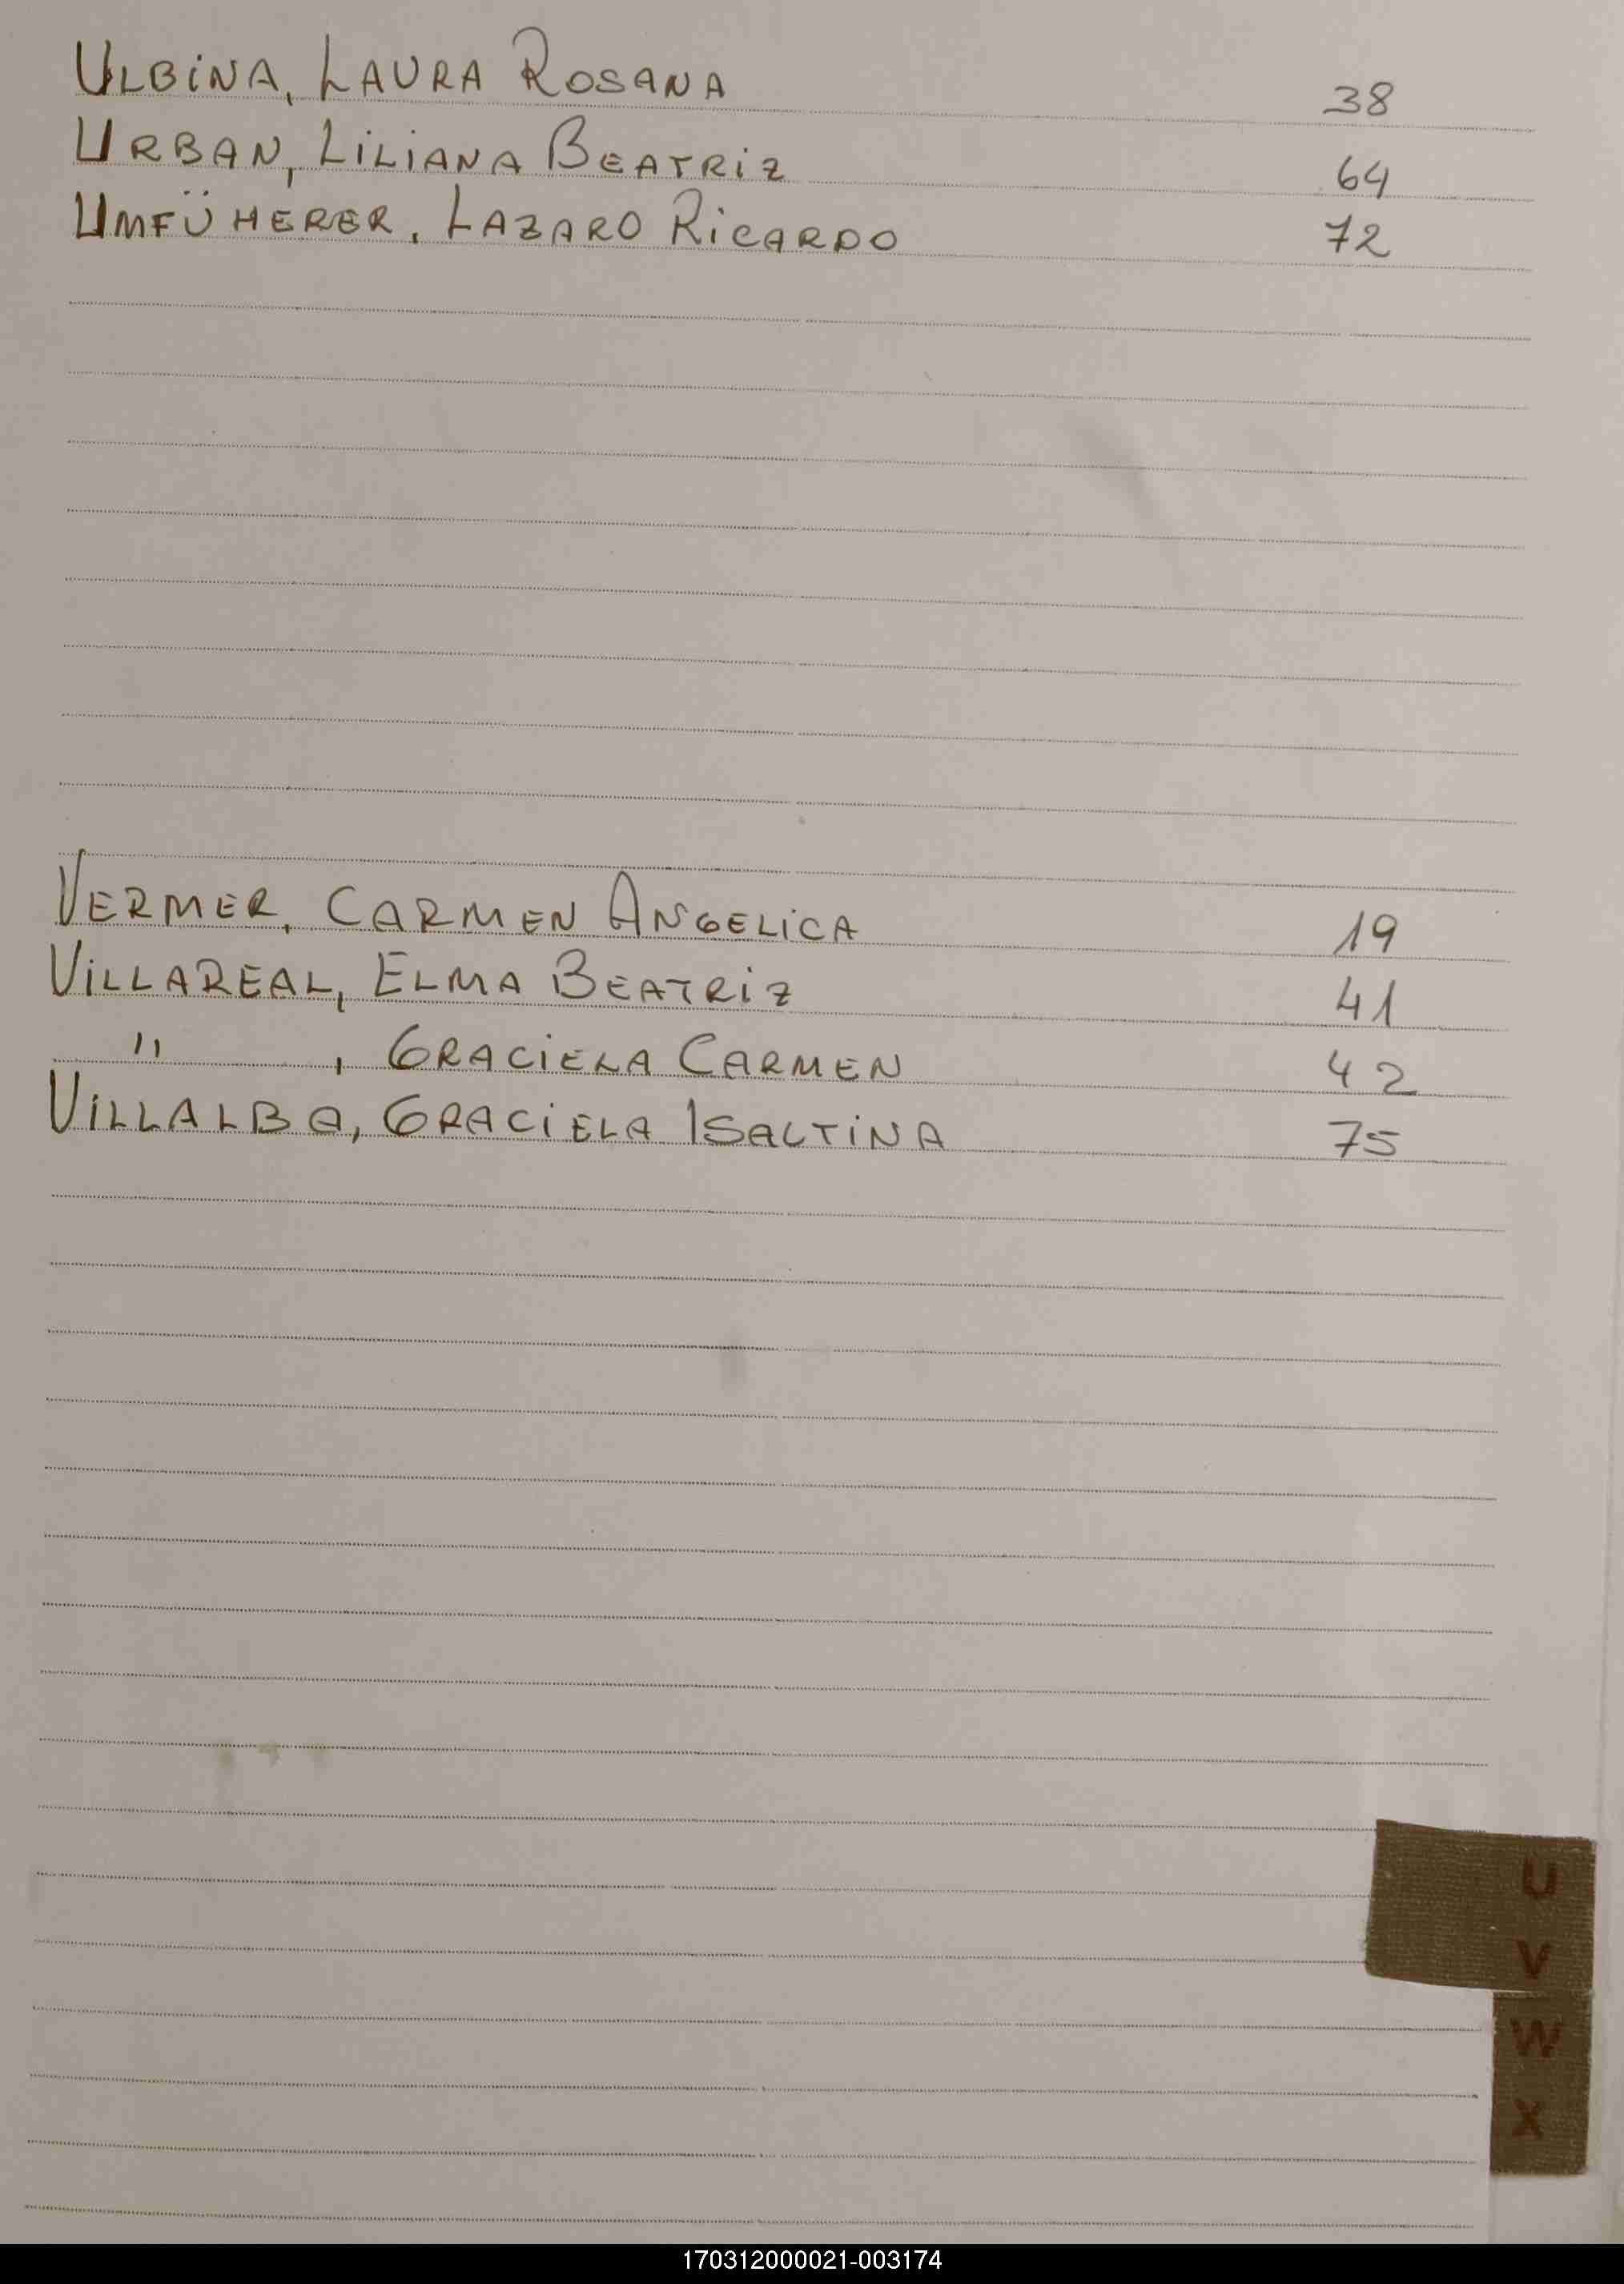 ULBINA, LAURA ROSANA 38
URBAN, LILIANA BEATRIZ 64
UMFÜHERER, LAZARO RICARDO 72
VERMER, CARMEN ANGELICA 19
VILLAREAL, ELMA BEATRIZ 41
" , GRACIELA CARMEN 42
VILLALBA, GRACIELA ISALTINA 75
U
V
W
X
170312000021-003174